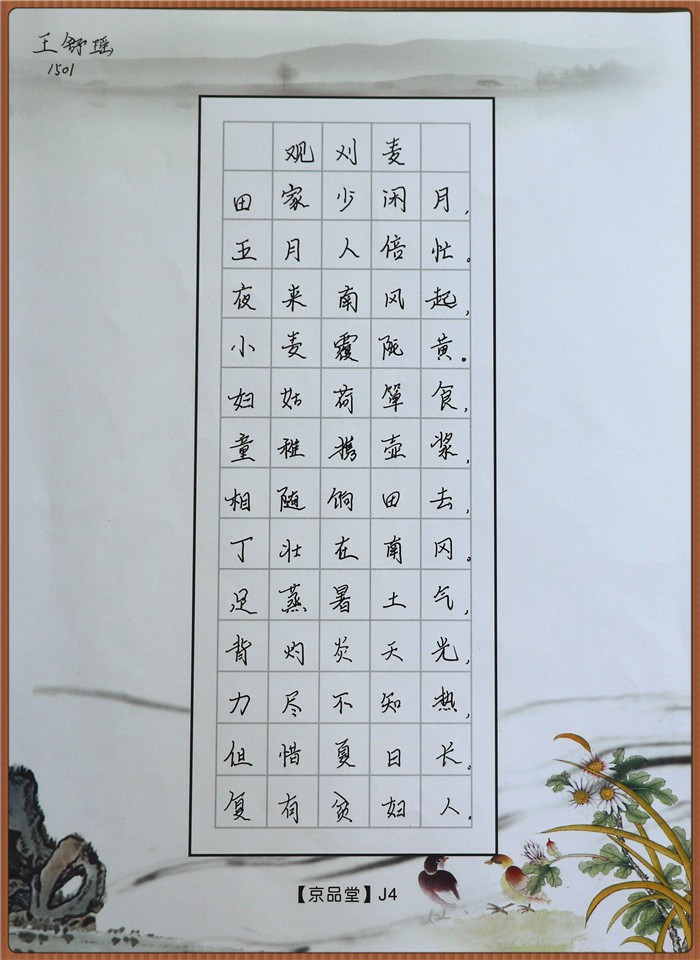 王舒瑶
1501
观刈麦
田家少闲月,
五月人倍忙。
夜来南风起,
小麦覆陇黄。
妇姑荷箪食,
童稚携壶浆,
相随饷田去,
丁壮在南冈。
足蒸暑土气,
背灼炎天光,
力尽不知热,
但惜夏日长。
复有贫妇人。
【京品堂】J4